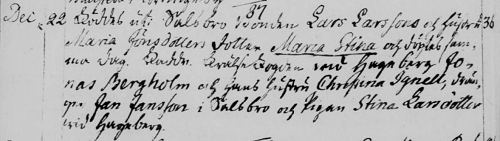 87
Dec. 22 föddes uti Salsbro Bonden Lars Larssons och hustru 36
Maria Jönsdotters dotter Maria Stina och döptes sam-
ma dag. Fadd. Befallningsman vid Hageberg Jo-
nas Bergholm och hans hustru Christina Ignell, drän-
gen Jan Jansson i Salsbro och Pigan Stina Larsdotter
vid Hageberg.